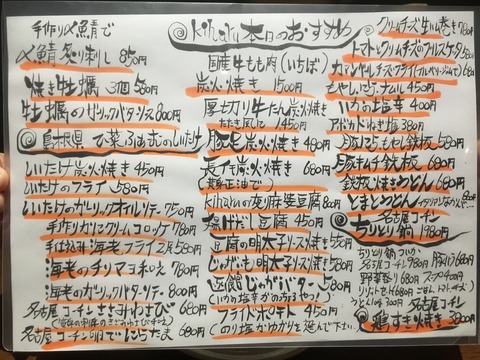 kiharu 本日のおすすめ
手作り〆鯖で
〆鯖炙り刺し 850円
焼き牡蠣 3個 580円
牡蠣のガーリックバター 800円
島根県
しいたけ炭火焼き 450円
しいたけのフライ 580円
しいたけのガーリックオイルソテー 750円
手作りカニクリームコロッケ 780円
手仕込み海老フライ2尾 580円
海老のチリマヨネーズ 780円
海老のガーリックバターソテー 800円
名古屋コーチンささみわさび 680円
名古屋コーチン卵でにらたま 680円
国産牛もも肉(いちぼ)
炭火焼き 1500円
厚切り牛たん炭火焼き
1450円
豚足炭火焼き 480円
長芋炭火焼き 680円
kiharuの麻婆豆腐 800円
揚げだし豆腐 450円
豆腐の明太チーズ焼き 550円
じゃがいも明太チーズ焼き 580円
函館じゃがバター 580円
(いかの塩辛がのってますよっ)
フライドポテト 450円
(のり塩かゆかりを選んで下さい)
クリームチーズ生ハム巻き 780円
トマトとクリームチーズのブルスケッタ 580円
カマンベールチーズフライ(ブルーベリージャムで) 680円
もやしピリ辛ナムル 450円
いかの塩辛 400円
アボカドねぎ塩 380円
豚にらもやし鉄板 580円
豚キムチ鉄板 680円
鉄板焼きうどん 680円
とまとうどん 680円
名古屋コーチン
ちりとり鍋 1980円
ちりとり鍋ついか
名古屋コーチン 780円
野菜盛り 680円
うどん 1年 300円
名古屋コーチン
鶏すき焼き 3200円